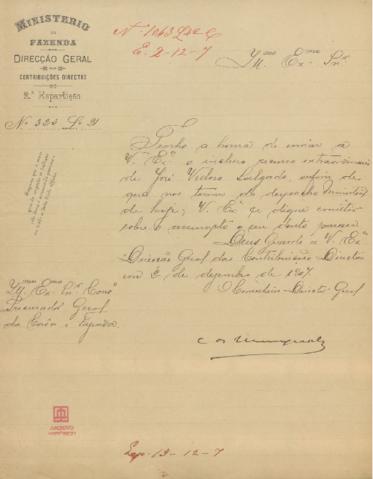 MINISTERIO
DA
FAZENDA
DIRECÇÃO GERAL
DAS
CONTRIBUIÇÕES DIRECTAS
2.ª Repartição
Nº 323 Lº 31
E. 2-12-7
Illmo Exmo Snr.
Tenho a honra de enviar a
V. Exª o incluso recurso extraordinario
de José Victor Salgado, afim de
que nos termos do despacho ministerial
de hoje, V. Exª se digne emittir
sobre o assumpto o seu douto parecer
Deus Guarde a V. Exª
Direcção Geral das Contribuições Directas
em 2 de dezembro de 1907.
O Conselheiro Director Geral
Illmo Exmo Snr. Consº
Procurador Geral
da Corôa e Fazenda
ARQUIVO
Exp. 13-12-7